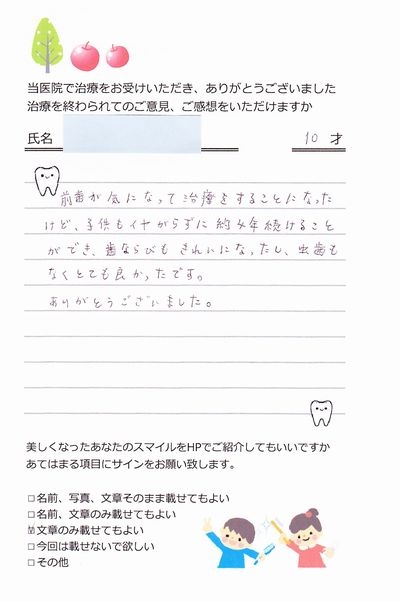 当医院で治療をお受けいただき、ありがとうございました
治療を終わられてのご意見、ご感想をいただけますか
氏名
10 才
前歯が気になって治療をすることになった
けど、子供もイヤがらずに約4年続けること
ができ、歯ならびもきれいになったし、虫歯も
なくとても良かったです。
ありがとうございました。
美しくなったあなたのスマイルをHPでご紹介してもいいですか
あてはまる項目にサインをお願い致します。
□名前、写真、文章そのまま載せてもよい
□名前、文章のみ載せてもよい
☑文章のみ載せてもよい
□今回は載せないで欲しい
□その他